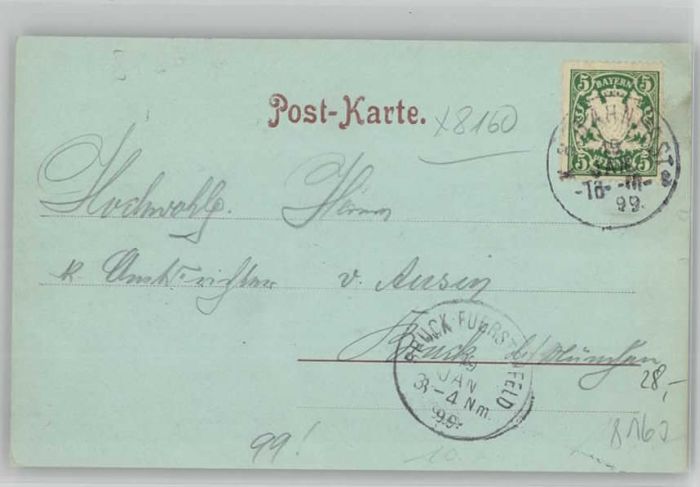 Post-Karte.
x8160
5 BAYERN 5
5 5
BAHN
JAN
99.
Hochwohlg. Herrn
k. Amtsrichter v. Ausin
Bruck b/München
BRUCK-FUERSTENFELD
JAN
3-4 Nm.
99.
28,-
8160
99!